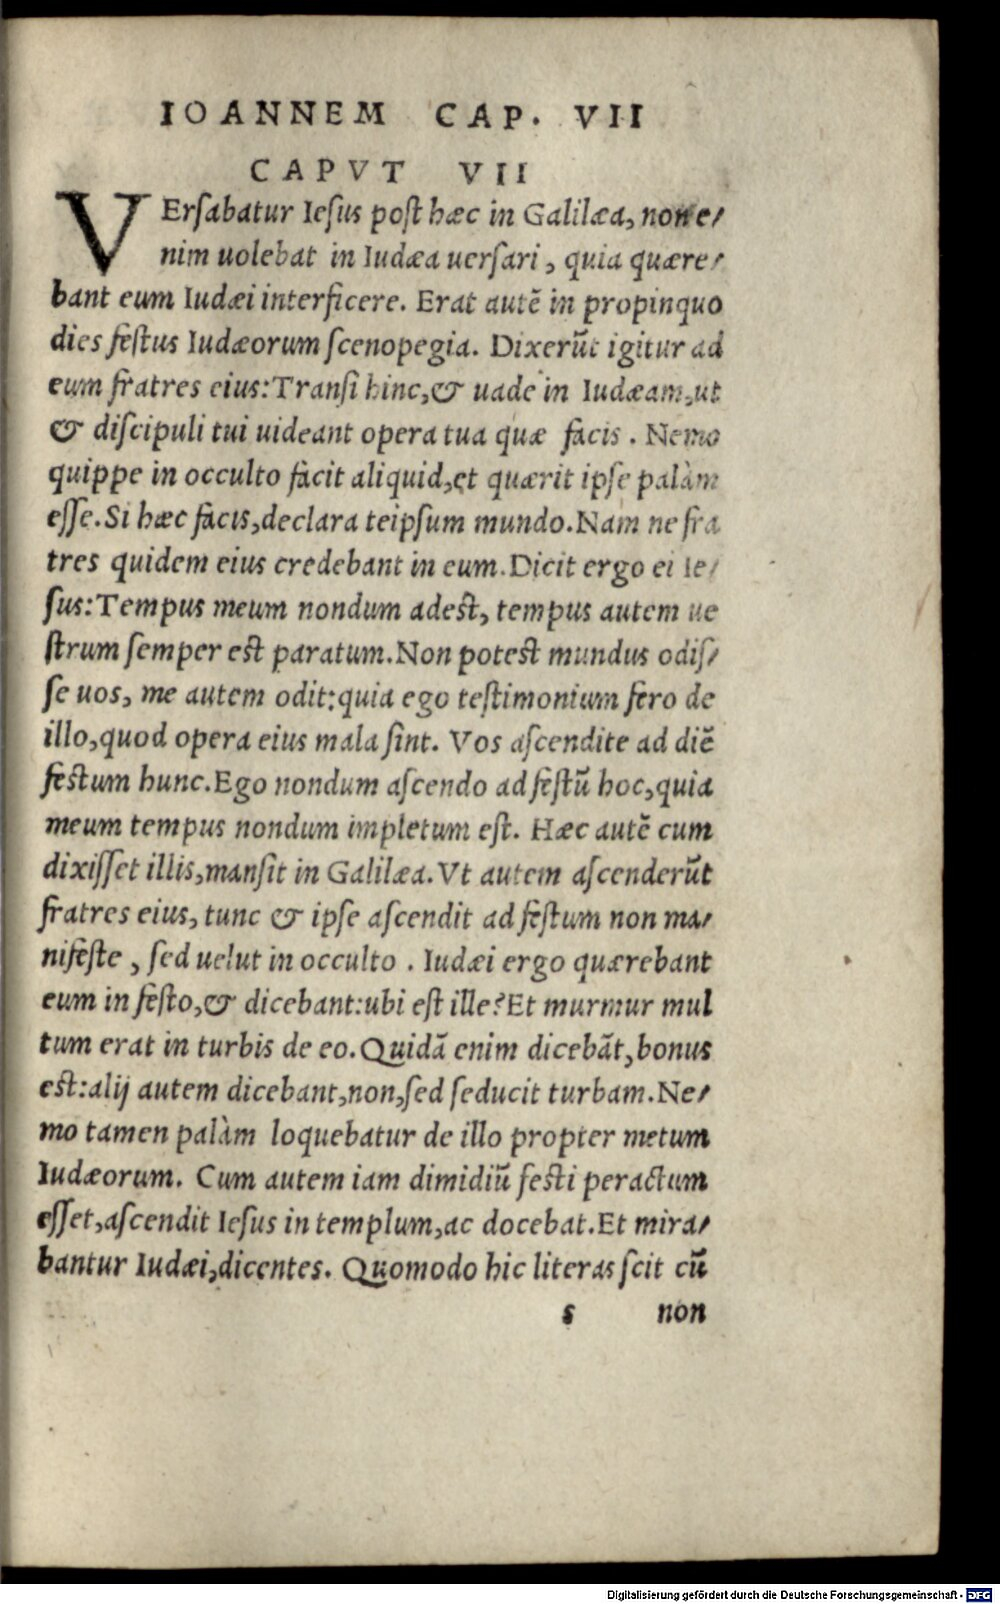 IOANNEM CAP. VII
CAPVT VII
VErſabatur Ieſus poſt hæc in Galilæa, non e/
nim uolebat in Iudæa uerſari, quia quære/
bant eum Iudæi interficere. Erat autē in propinquo
dies feſtus Iudæorum ſcenopegia. Dixerūt igitur ad
eum fratres eius:Tranſi hinc,& uade in Iudæam,ut
& diſcipuli tui uideant opera tua quæ facis. Nemo
quippe in occulto facit aliquid,et quærit ipſe palàm
eſſe.Si hæc facis,declara teipſum mundo.Nam ne fra
tres quidem eius credebant in eum.Dicit ergo ei Ie/
ſus:Tempus meum nondum adest, tempus autem ue
ſtrum ſemper est paratum.Non potest mundus odiſ/
ſe uos, me autem odit:quia ego teſtimonium fero de
illo,quod opera eius mala ſint. Vos aſcendite ad diē
festum hunc.Ego nondum aſcendo ad feſtū hoc,quia
meum tempus nondum impletum eſt. Hæc autē cum
dixiſſet illis,manſit in Galilæa.Vt autem aſcenderūt
fratres eius, tunc & ipſe aſcendit ad feſtum non ma/
nifeſte, ſed uelut in occulto. Iudæi ergo quærebant
eum in feſto,& dicebant:ubi eſt ille?Et murmur mul
tum erat in turbis de eo.Quidā enim dicebāt,bonus
est:alij autem dicebant,non,ſed ſeducit turbam.Ne/
mo tamen palàm loquebatur de illo propter metum
Iudæorum. Cum autem iam dimidiū festi peractum
eſſet,aſcendit Ieſus in templum,ac docebat.Et mira/
bantur Iudæi,dicentes. Quomodo hic literas ſcit cū
s non
Digitalisierung gefördert durch die Deutsche Forschungsgemeinschaft - DFG